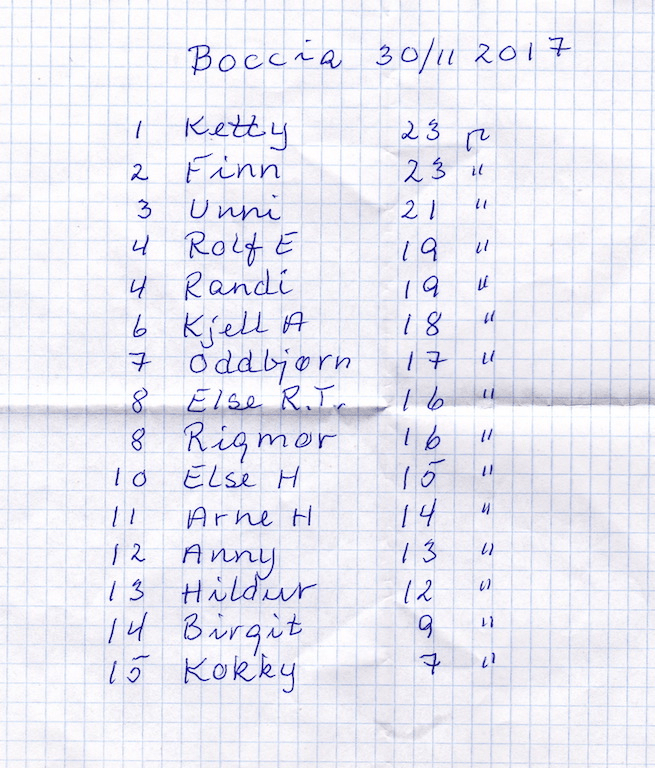 Boccia 30/11 2017
1 Ketty 23 p
2 Finn 23 "
3 Unni 21 "
4 Rolf E 19 "
4 Randi 19 "
6 Kjell A 18 "
7 Oddbjørn 17 "
8 Else R.T. 16 "
8 Rigmor 16 "
10 Else H 15 "
11 Arne H 14 "
12 Anny 13 "
13 Hildur 12 "
14 Birgit 9 "
15 Kokky 7 "